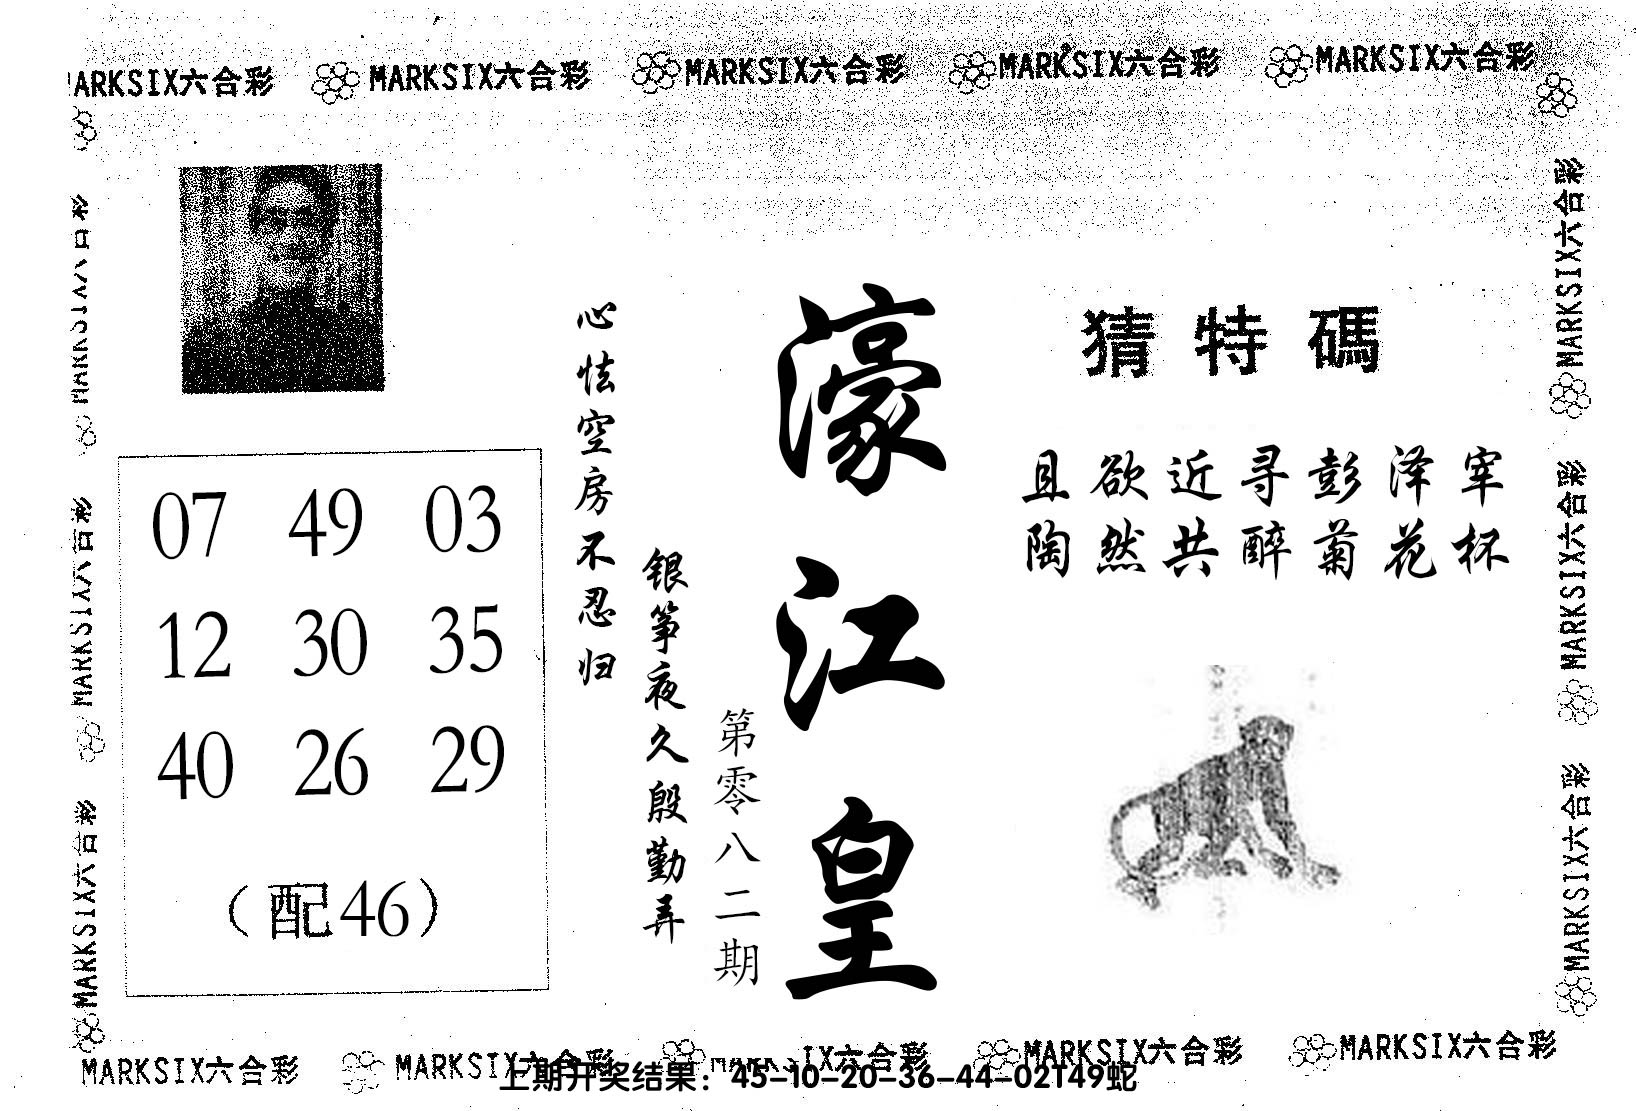 MARKSIX六合彩 MARKSIX六合彩 MARKSIX六合彩 MARKSIX六合彩 MARKSIX六合彩
MARKSIX六合彩
MARKSIX六合彩
MARKSIX六合彩
MARKSIX六合彩
MARKSIX六合彩
MARKSIX六合彩
07 49 03
12 30 35
40 26 29
（配46）
心怯空房不忍归
银筝夜久殷勤弄
第零八二期
濠江皇
猜特碼
且欲近寻彭泽宰
陶然共醉菊花杯
MARKSIX六合彩 MARKSIX六合彩 MARKSIX六合彩 MARKSIX六合彩 MARKSIX六合彩
上期开奖结果：45-10-20-36-44-02T49蛇